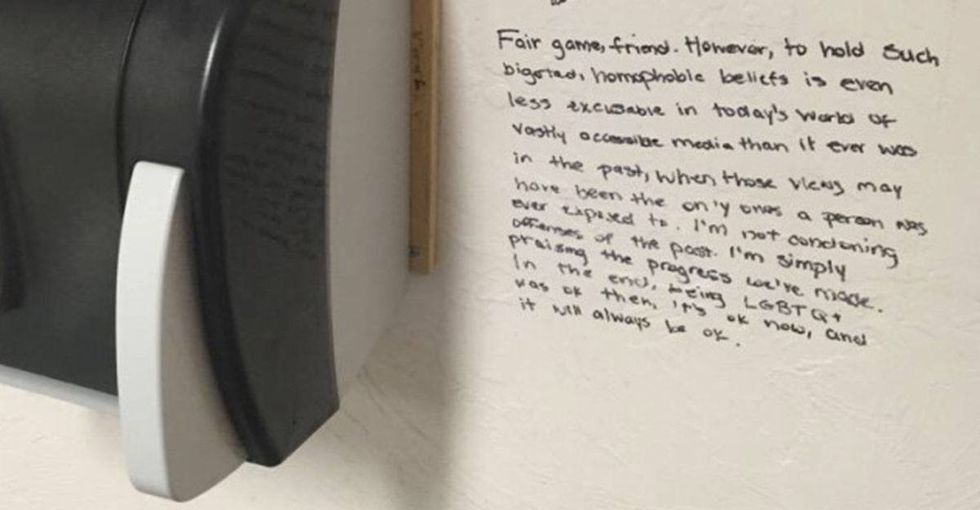 Fair game, friend. However, to hold such
bigoted, homophobic beliefs is even
less excusable in today's world of
vastly accessible media than it ever was
in the past, when those views may
have been the only ones a person was
ever exposed to. I'm not condoning
offenses of the past. I'm simply
praising the progress we've made.
In the end, being LGBTQ+
was ok then, it's ok now, and
it will always be ok.